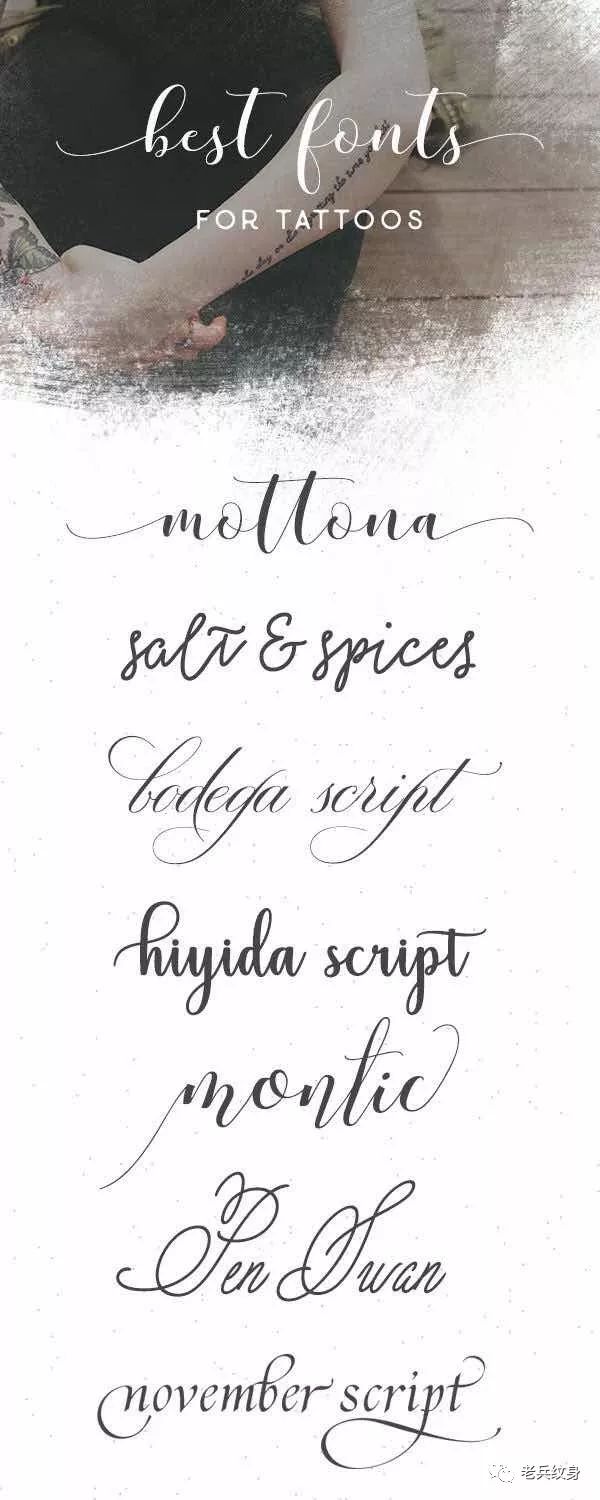 best fonts
FOR TATTOOS
mottona
salt & spices
bodega script
hiyida script
montic
Pen Swan
november script
老兵纹身